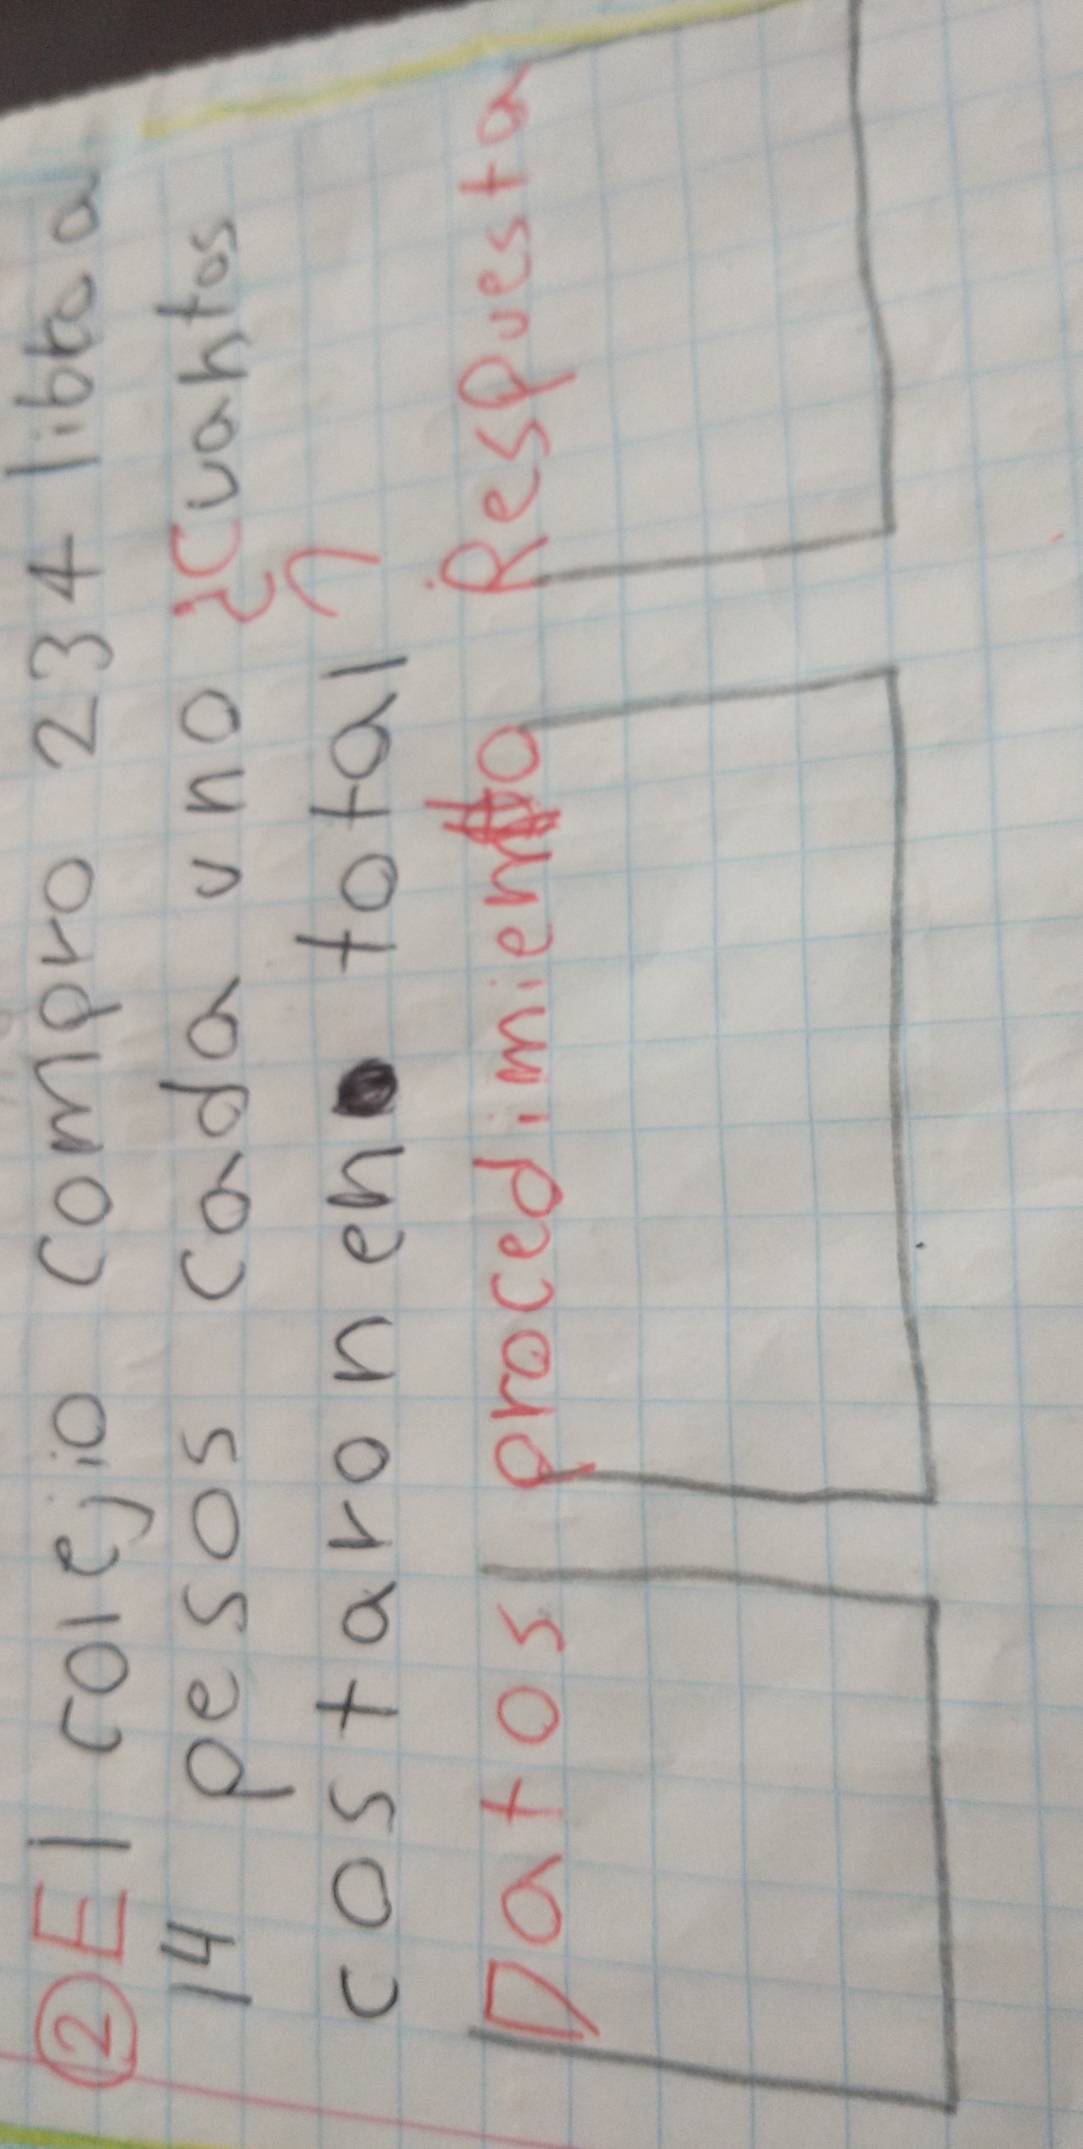 ② El colejio compro 234 libboa
14 pesos cada uno ¿Cuahtos
costaron en total ?
Datos procedimiento Respuesta